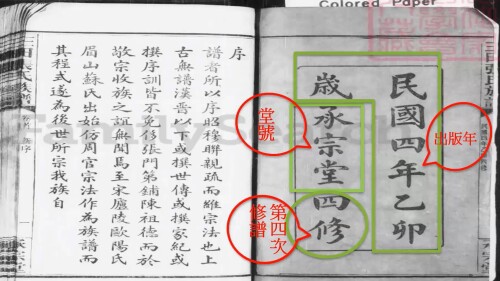 Colored Paper
民國四年乙卯
歲承宗堂四修
出版年
堂號
第四次
修譜
序
譜者所以序昭穆聯親疏而維宗法也上
古無譜漢晉以下或撰世傳或撰家紀或
撰序訓皆不免侈張門第鋪陳祖德而於
敬宗收族之誼無聞焉至宋廬陵歐陽氏
眉山蘇氏出始仿周官宗法作為族譜而
其程式遂為後世所宗我族自
三田張氏族譜
FamilySearch